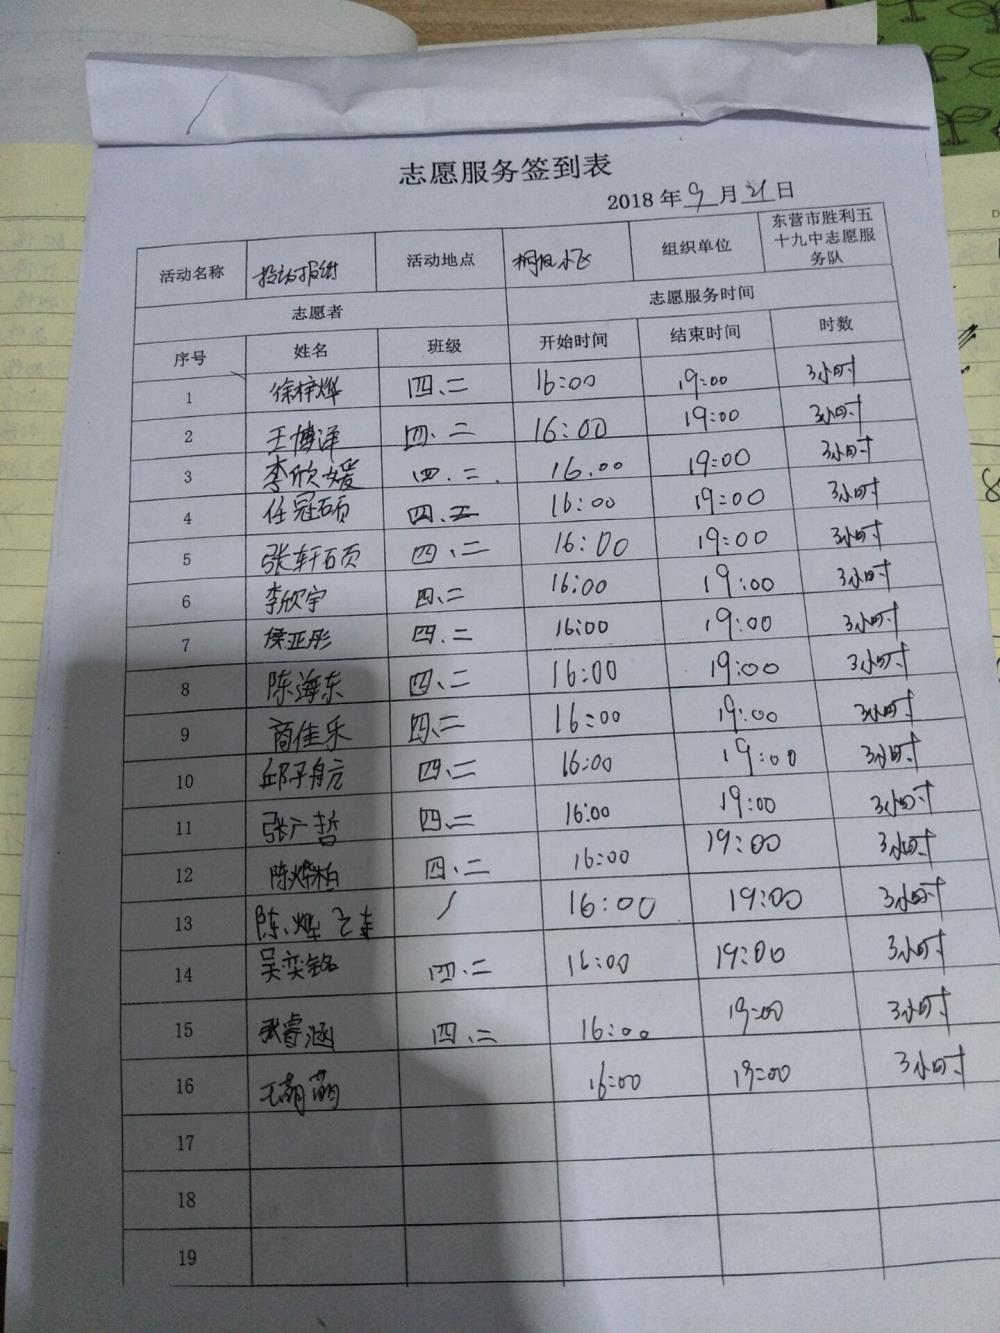 志愿服务签到表
2018年9月21日
活动名称 活动地点 组织单位 东营市胜利五十九中志愿服务队
志愿者 志愿服务时间
序号 姓名 班级 开始时间 结束时间 时数
1 徐梓烨 四、二 16:00 19:00 3小时
2 王博洋 四、二 16:00 19:00 3小时
3 李欣媛 四、二 16.00 19:00 3小时
4 任冠硕 四、二 16:00 19:00 3小时
5 张轩硕 四、二 16:00 19:00 3小时
6 李欣宇 四、二 16:00 19:00 3小时
7 侯亚彤 四、二 16:00 19:00 3小时
8 陈海东 四、二 16:00 19:00 3小时
9 商佳乐 四、二 16:00 19:00 3小时
10 邱子航 四、二 16:00 19:00 3小时
11 张广哲 四、二 16:00 19:00 3小时
12 陈烨柏 四、二 16:00 19:00 3小时
13 陈 / 16:00 19:00 3小时
14 吴奕铭 四、二 16:00 19:00 3小时
15 张睿涵 四、二 16:00 19:00 3小时
16 王萌萌 16:00 19:00 3小时
17
18
19